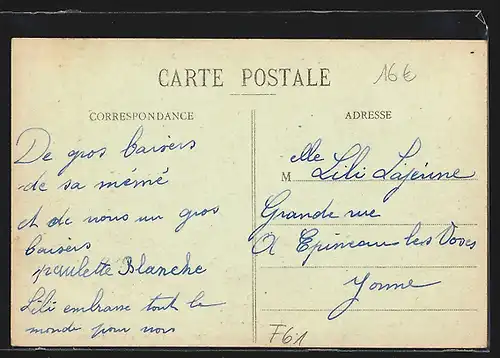 CARTE POSTALE
16€
CORRESPONDANCE
De gros baisers
de sa mémé
et de nous un gros
baisers
paulette Blanche
Lili embrasse tout le
monde pour nous
ADRESSE
Melle Lili Lajeunne
Grande rue
A Epineau les Voves
Yonne
F61